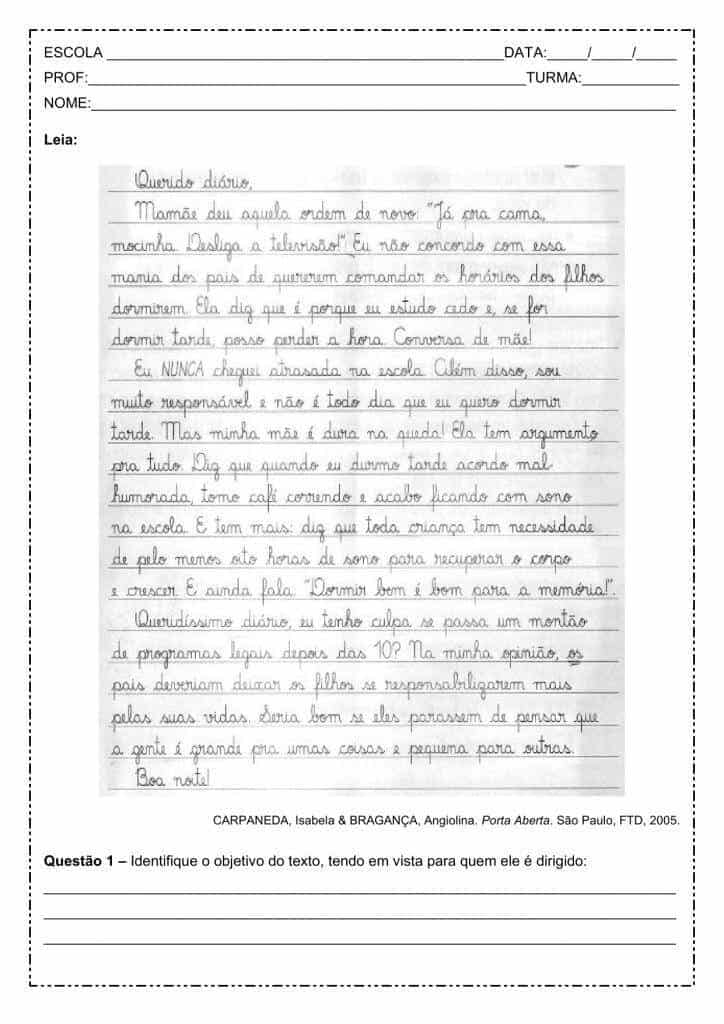 ESCOLA ____________________DATA:_____/_____/_____
PROF:____________________TURMA:____________
NOME:____________________
Leia:
Querido diário,
Mamãe deu aquela ordem de novo: "Já pra cama,
mocinha. Desliga a televisão!" Eu não concordo com essa
mania dos pais de quererem comandar os horários dos filhos
dormirem. Ela diz que é porque eu estudo cedo e, se for
dormir tarde, posso perder a hora. Conversa de mãe!
Eu NUNCA cheguei atrasada na escola. Além disso, sou
muito responsável e não é todo dia que eu quero dormir
tarde. Mas minha mãe é dura na queda! Ela tem argumento
pra tudo. Diz que quando eu durmo tarde acordo mal
humorada, tomo café correndo e acabo ficando com sono
na escola. E tem mais: diz que toda criança tem necessidade
de pelo menos oito horas de sono para recuperar o corpo
e crescer. E ainda fala: "Dormir bem é bom para a memória!".
Queridíssimo diário, eu tenho culpa se passa um montão
de programas legais depois das 10? Na minha opinião, os
pais deveriam deixar os filhos se responsabilizarem mais
pelas suas vidas. Seria bom se eles parassem de pensar que
a gente é grande pra umas coisas e pequena para outras.
Boa noite!
CARPANEDA, Isabela & BRAGANÇA, Angiolina. Porta Aberta. São Paulo, FTD, 2005.
Questão 1 – Identifique o objetivo do texto, tendo em vista para quem ele é dirigido: